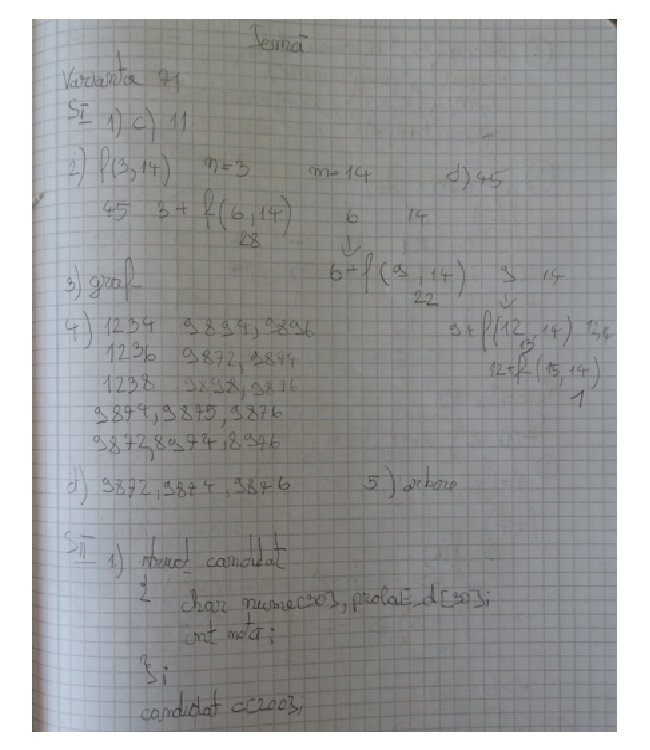 Temă
Varianta 71
SI 1) c) 11
2) f(3,14) n=3 m=14 d) 45
45 3+ f(6,14) 6 14
28
6+f(9,14) 9 14
22
3) graf
4) 1234 9894, 9896 9+f(12,14)
13
1236 9872, 9874 12+f(15,14)
1238 9898, 9876 1
9874, 9875, 9876
9872, 8974, 8976
d) 9872, 9874, 9876 5) arbore
SII 1) struct candidat
{
char nume[30],
int nota;
};
candidat c[200];